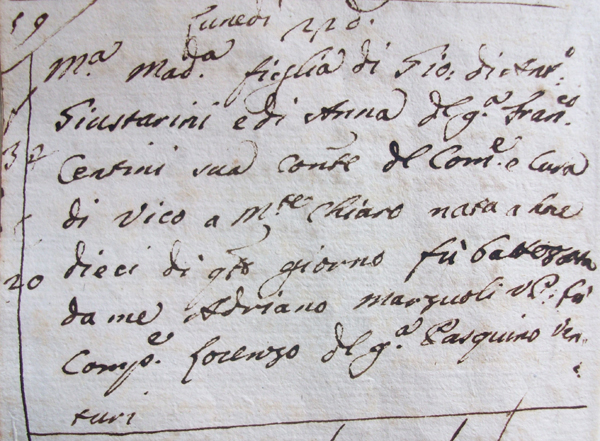 59 Lunedi 22 d.
Mª Madª figlia di Gio: di Ant.º
Giustarini e di Anna del qª Fran.co
32 Centini sua Conte del Com.e e Cura
di Vico a Mte Chiaro nata a hre
20 dieci di qto giorno fù battezzata
da me Adriano Marzuoli VP: fù
Comp.e Lorenzo del g.ª Pasquino Ven=
turi